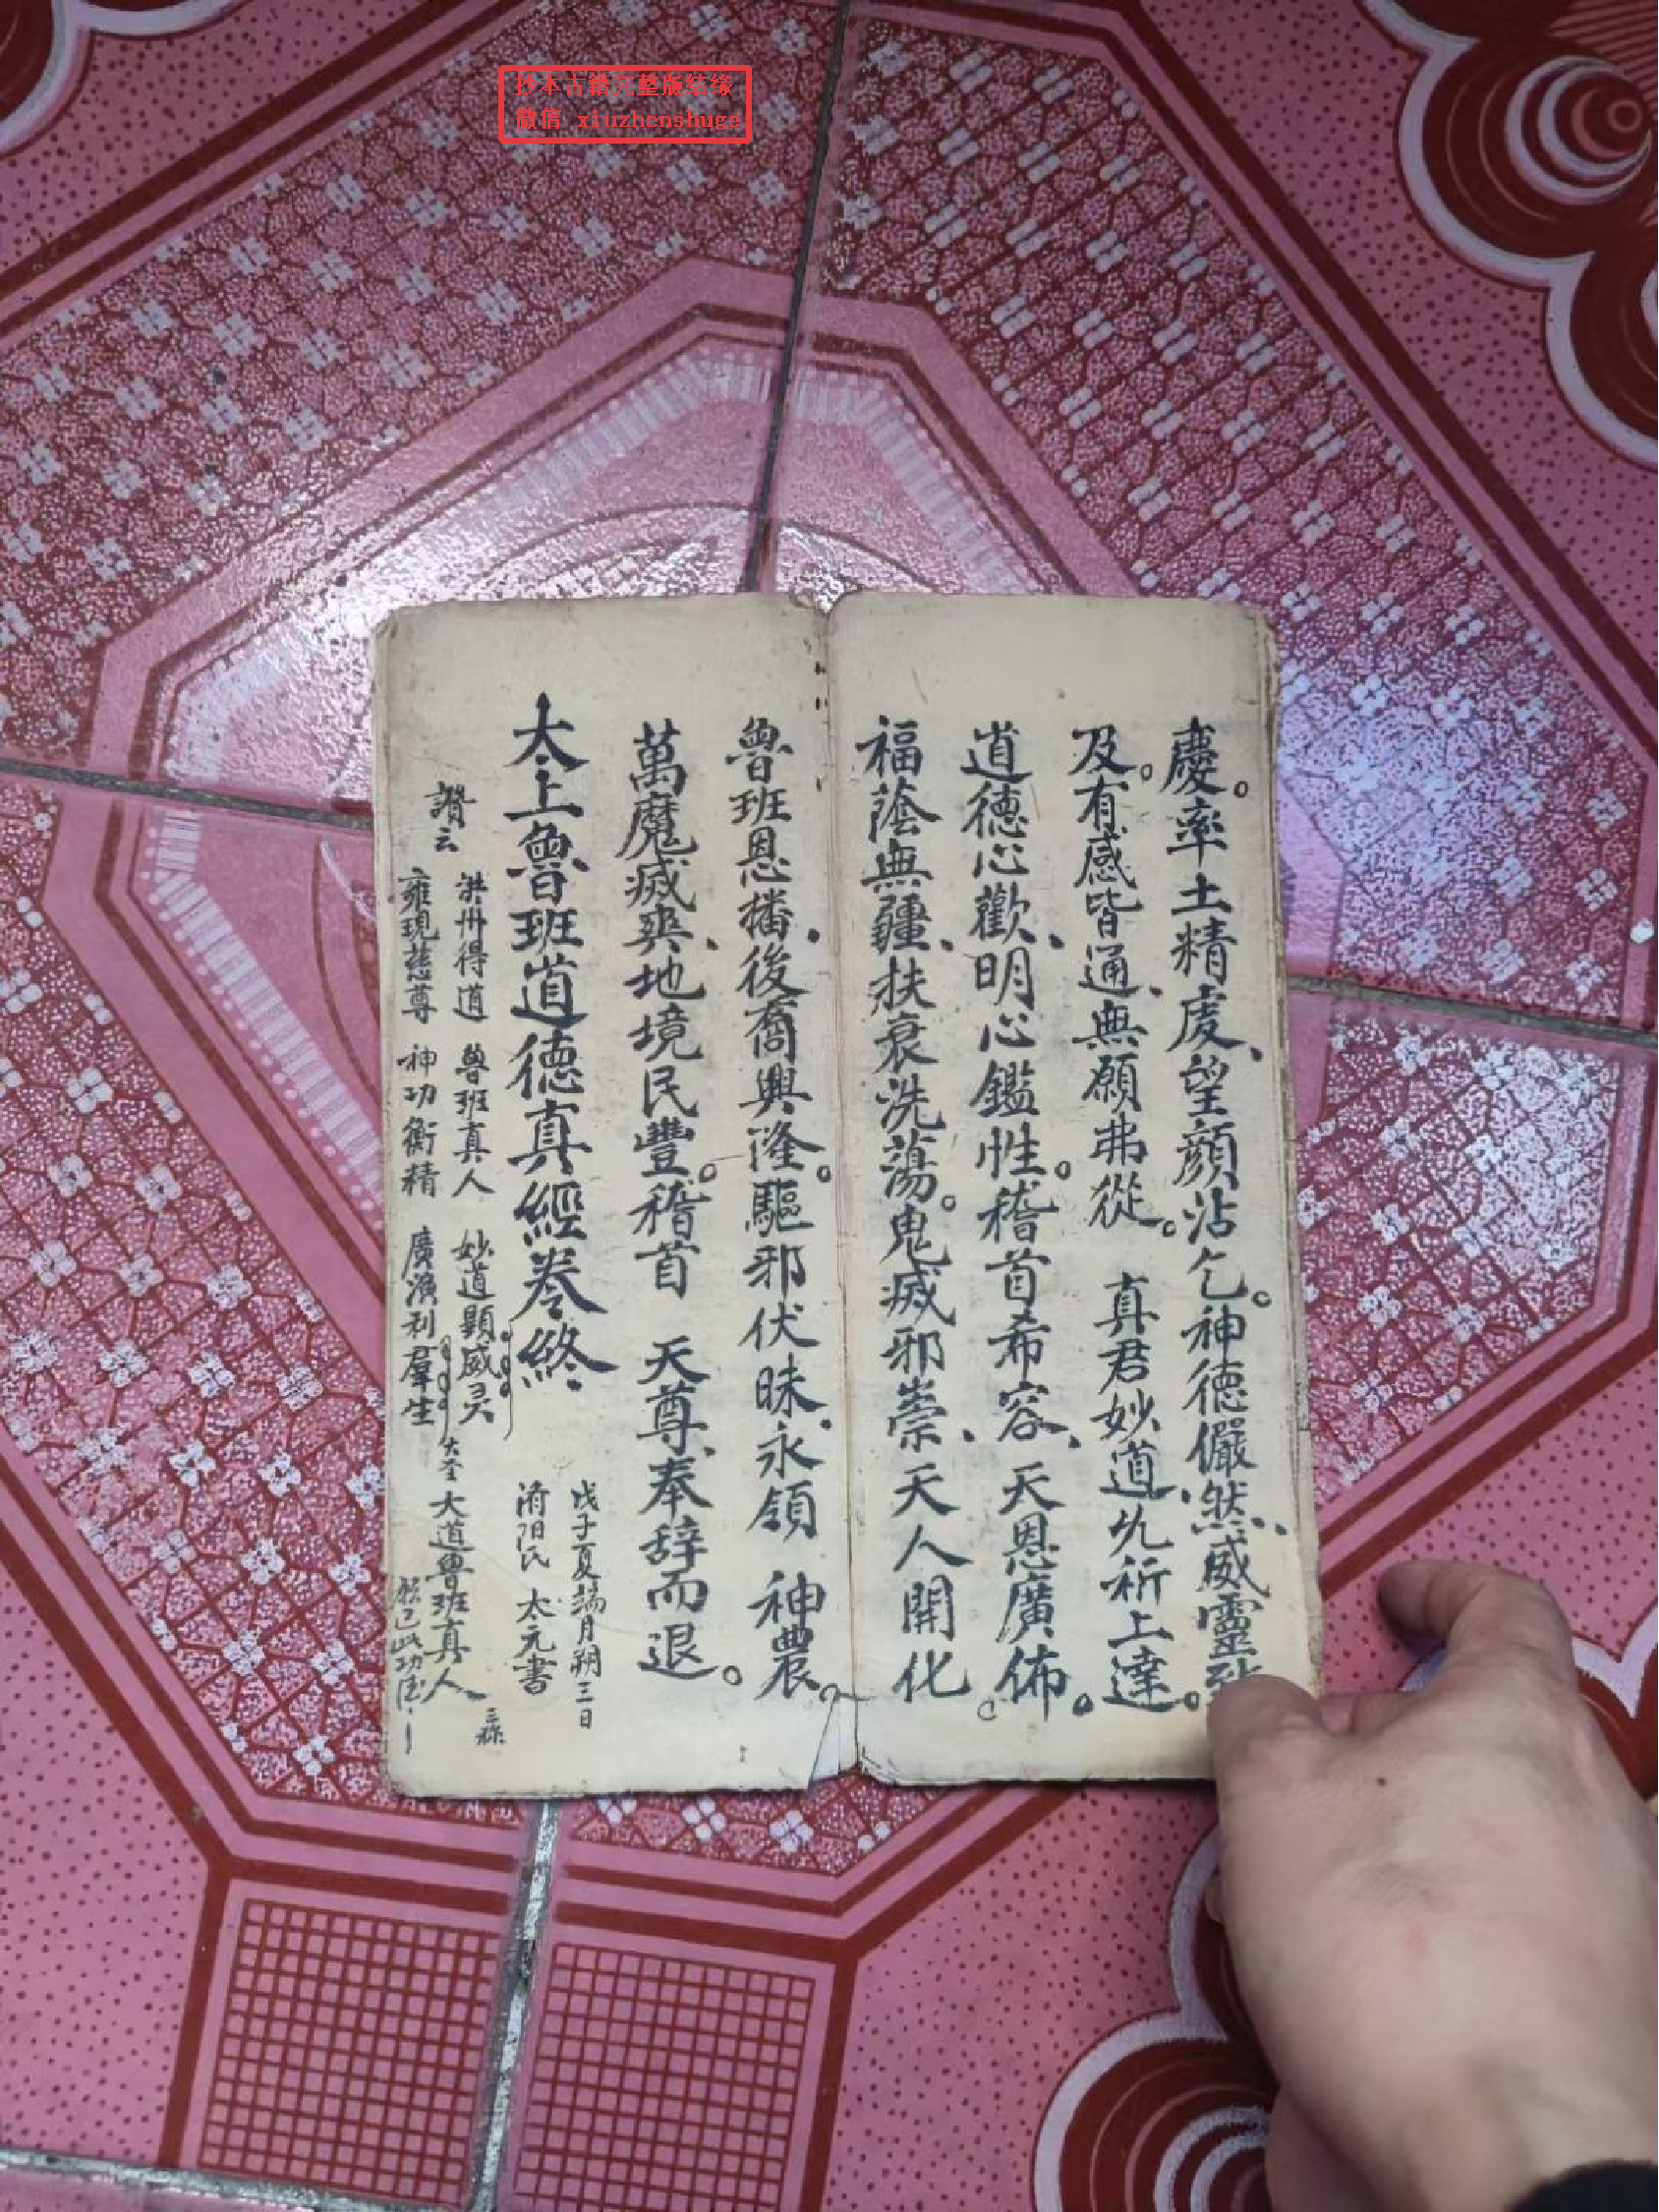 抄本古籍完整版结缘
微信 xiuzhenshuge
慶。率土精虔、望顔沾乞。神德儼然、威靈
及。有感皆通、無願弗從。真君妙道、允祈上達。
道德心歡、明心鑑性。稽首希容、天恩廣佈。
福蔭無疆、扶衰洗蕩。鬼滅邪崇、天人開化
魯班恩播、後裔興隆。驅邪伏昧、永領 神農。
萬魔滅爽、地境民豐。稽首 天尊、奉辞而退。
太上魯班道德真經卷終
戊子夏端月朔三日
濟阳氏 太元書
讚云
洪州得道 魯班真人 妙道顯威灵
雍現慈尊 神功衡精 廣演利羣生
大圣 大道魯班真人
三称
此功